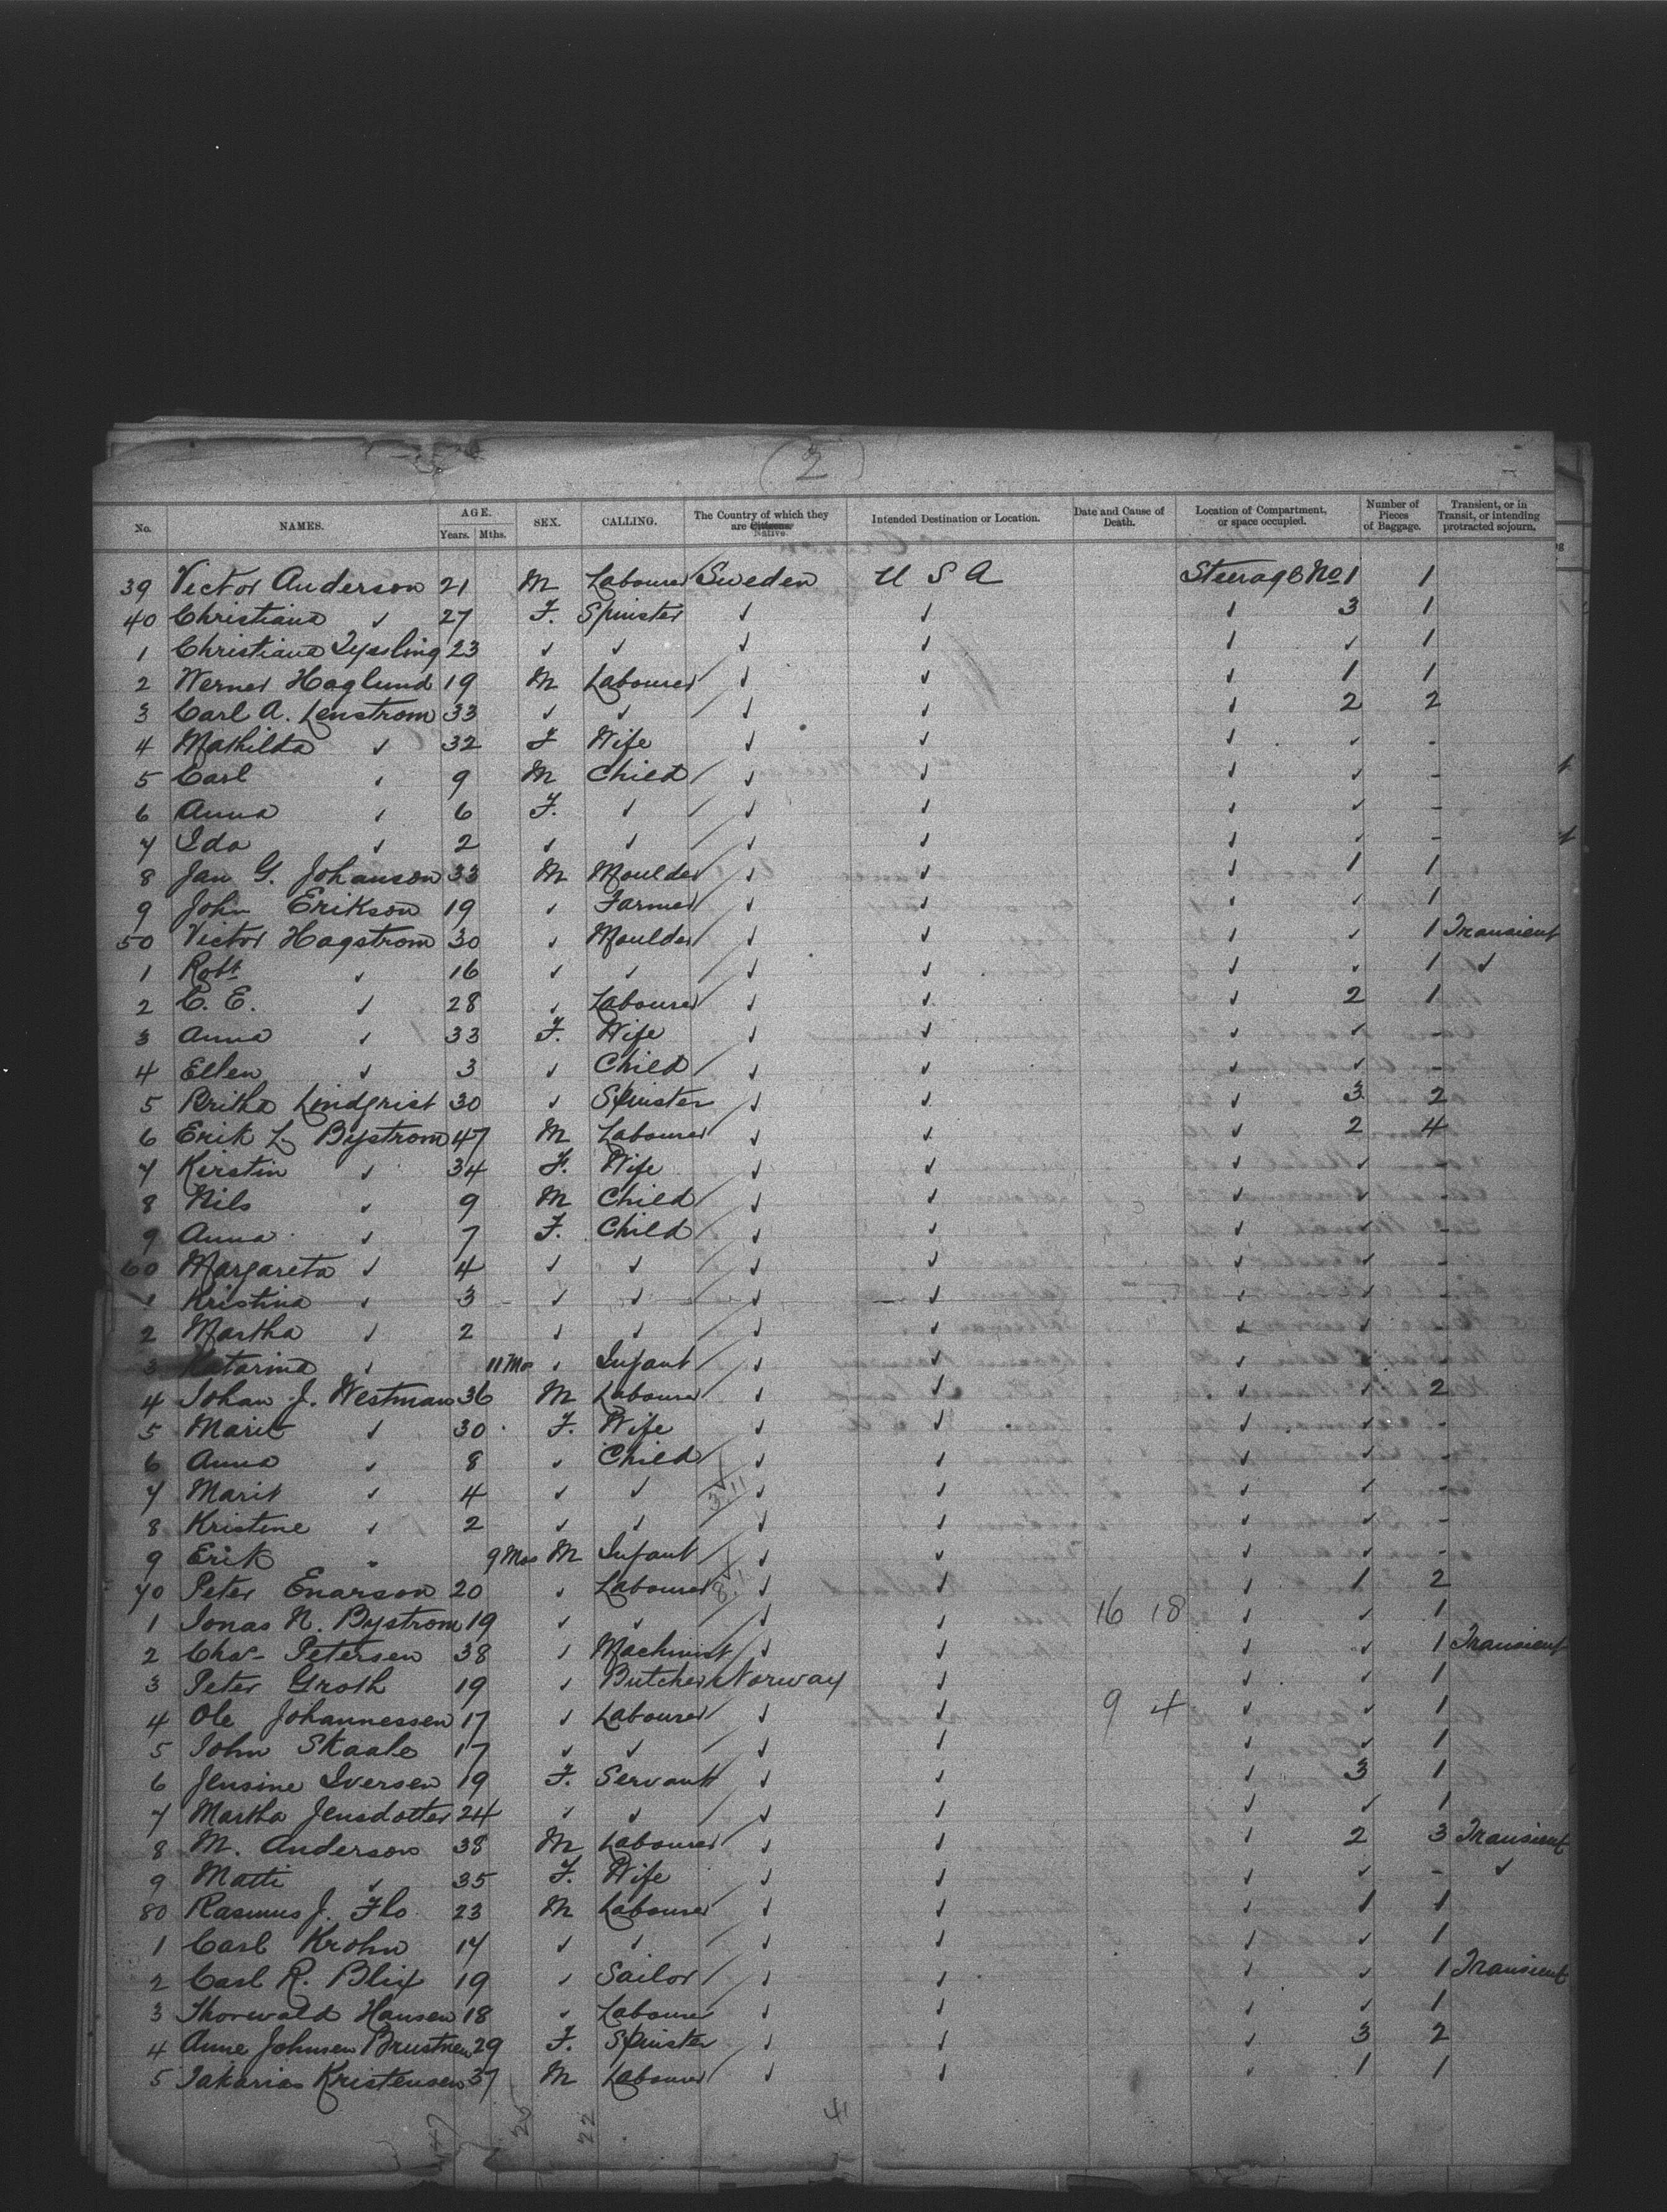 (2)
No. NAMES. AGE. Years. Mths. SEX. CALLING. The Country of which they are Citizens Native. Intended Destination or Location. Date and Cause of Death. Location of Compartment, or space occupied. Number of Pieces of Baggage. Transient, or in Transit, or intending protracted sojourn.
39 Victor Anderson 21 M Labourer Sweden U S A Steerage No 1 1
40 Christiana ✓ 27 F. Spinster ✓ ✓ ✓ 3 1
1 Christiana 23 ✓ ✓ ✓ ✓ ✓ ✓ 1
2 Werner Haglund 19 M Labourer ✓ ✓ ✓ 1 1
3 Carl A. Lenstrom 33 ✓ ✓ ✓ ✓ ✓ 2 2
4 Mathilda ✓ 32 F Wife ✓ ✓ ✓ ✓ -
5 Carl ✓ 9 M Child ✓ ✓ ✓ ✓ -
6 Anna ✓ 6 F. ✓ ✓ ✓ ✓ ✓ -
7 Ida ✓ 2 ✓ ✓ ✓ ✓ ✓ ✓ -
8 Jan G. Johanson 33 M Moulder ✓ ✓ ✓ 1 1
9 John Erikson 19 ✓ Farmer ✓ ✓ ✓ ✓ 1
50 Victor Hagstrom 30 ✓ Moulder ✓ ✓ ✓ ✓ 1 Transient
1 Robt ✓ 16 ✓ ✓ ✓ ✓ ✓ ✓ 1 ✓
2 C. E. ✓ 28 ✓ Labourer ✓ ✓ ✓ 2 1
3 Anna ✓ 33 F. Wife ✓ ✓ ✓ ✓ -
4 Ellen ✓ 3 ✓ Child ✓ ✓ ✓ ✓ -
5 Britha Lindqrist 30 ✓ Spinster ✓ ✓ ✓ 3 2
6 Erik L Bystrom 47 M Labourer ✓ ✓ ✓ 2 4
7 Kerstin ✓ 34 F. Wife ✓ ✓ ✓ ✓ -
8 Nils ✓ 9 M Child ✓ ✓ ✓ ✓ -
9 Anna ✓ 7 F. Child ✓ ✓ ✓ ✓ -
60 Margareta ✓ 4 ✓ ✓ ✓ ✓ ✓ ✓ -
1 Kristina ✓ 3 ✓ ✓ ✓ ✓ ✓ ✓ -
2 Martha ✓ 2 ✓ ✓ ✓ ✓ ✓ ✓ -
3 Katarina ✓ 11 Mos ✓ Infant ✓ ✓ ✓ ✓ -
4 Johan J. Westman 36 M Labourer ✓ ✓ ✓ ✓ 2
5 Marit ✓ 30 F. Wife ✓ ✓ ✓ ✓ -
6 Anna ✓ 8 ✓ Child ✓ ✓ ✓ ✓ -
7 Marit ✓ 4 ✓ ✓ ✓ ✓ ✓ ✓ -
8 Kristine ✓ 2 ✓ ✓ ✓ ✓ ✓ ✓ -
9 Erik " 9 Mos M Infant ✓ ✓ ✓ ✓ -
70 Peter Enarson 20 ✓ Labourer ✓ ✓ ✓ 1 2
1 Jonas N. Bystrom 19 ✓ ✓ ✓ ✓ 16 18 ✓ ✓ 1
2 Chas- Petersen 38 ✓ Machinist ✓ ✓ ✓ ✓ 1 Transient
3 Peter Groth 19 ✓ Butcher Norway ✓ ✓ ✓ 1
4 Ole Johannessen 17 ✓ Labourer ✓ ✓ 9 4 ✓ ✓ 1
5 John Skaale 17 ✓ ✓ ✓ ✓ ✓ ✓ 1
6 Jensine Iversen 19 F. Servant ✓ ✓ ✓ 3 1
7 Martha Jensdotter 24 ✓ ✓ ✓ ✓ ✓ ✓ 1
8 M. Anderson 38 M Labourer ✓ ✓ ✓ 2 3 Transient
9 Matti ✓ 35 F. Wife ✓ ✓ ✓ ✓ - ✓
80 Rasmus J. Flo 23 M Labourer ✓ ✓ ✓ 1 1
1 Carl Krohn 17 ✓ ✓ ✓ ✓ ✓ ✓ 1
2 Carl R. Blix 19 ✓ Sailor ✓ ✓ ✓ ✓ 1 Transient
3 Thorwald Hansen 18 ✓ Labourer ✓ ✓ ✓ ✓ 1
4 Anne Johnsen 29 F. Spinster ✓ ✓ ✓ 3 2
5 Zakarias Kristensen 37 M Labourer ✓ ✓ ✓ 1 1
22 4